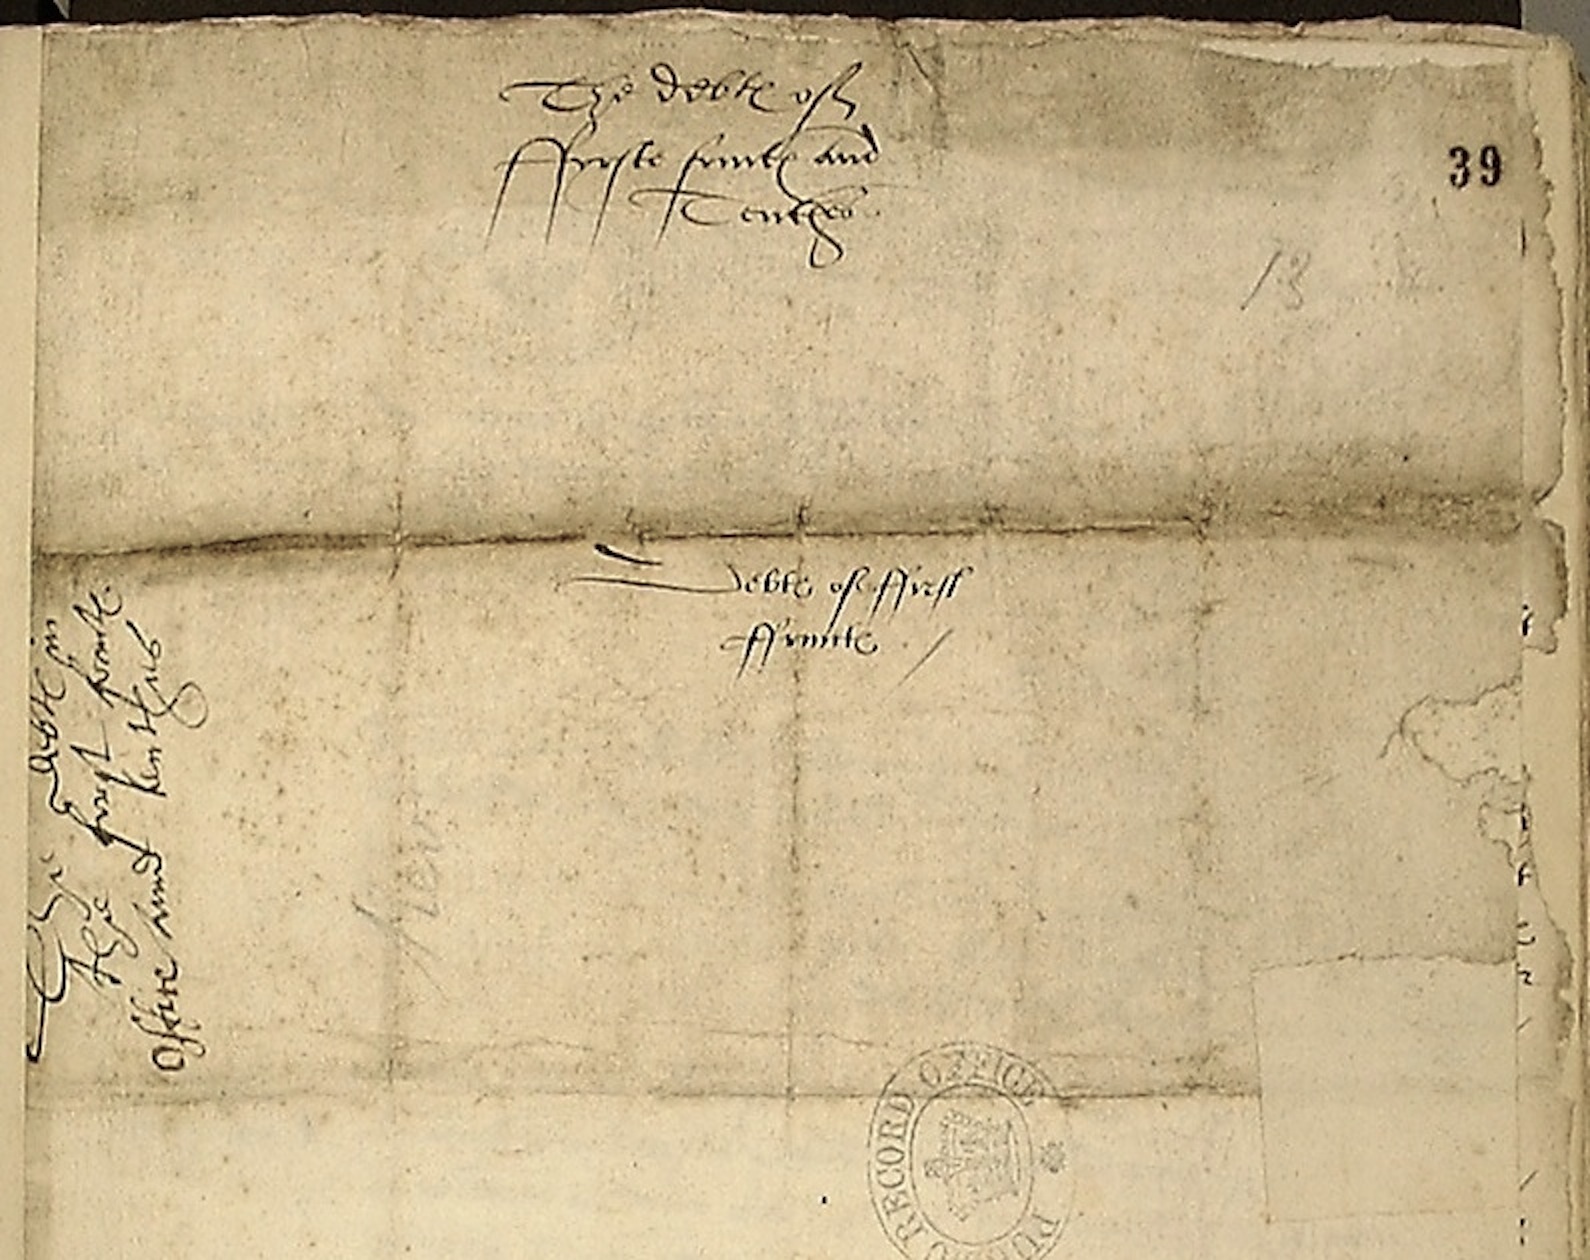 The debtꝭ off
ffyrste fruitꝭ and
Tenthes
39
13
Debtꝭ off ffirst
ffruitꝭ
The debtꝭ in
the first fruitꝭ
office and tenthes
PUBLIC RECORD OFFICE